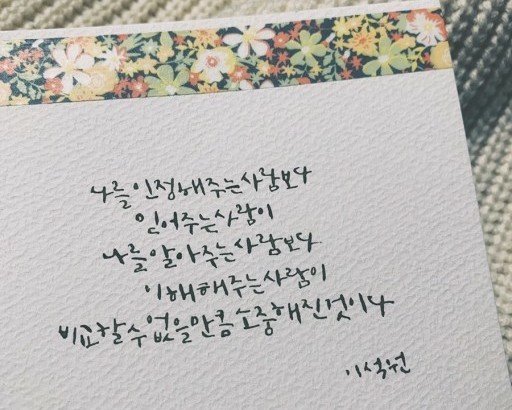 나를 인정해주는 사람보다
믿어주는 사람이
나를 알아주는 사람보다
이해해주는 사람이
비교할 수 없을 만큼 소중해진 것이다
이석원